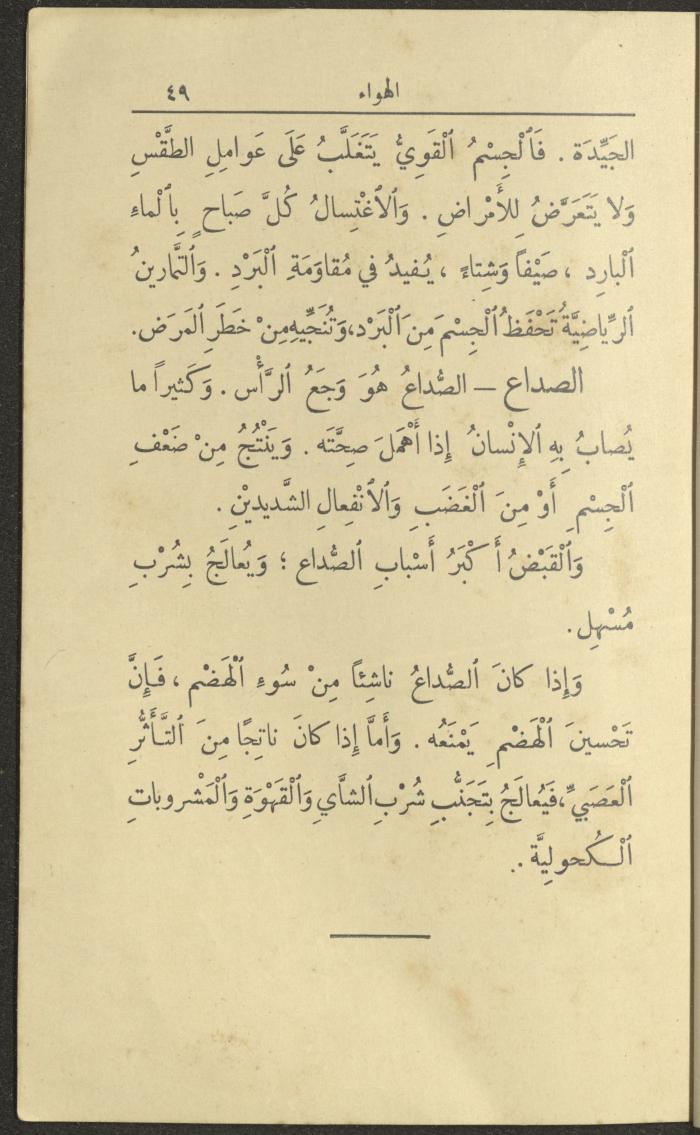 الهواء ٤٩
الجَيِّدَة . فَٱلْجِسْمُ ٱلْقَوِيُّ يَتَغَلَّبُ عَلَى عَوامِلِ الطَّقْسِ
وَلا يَتَعَرَّضُ لِلأَمْراضِ . وَٱلاَغْتِسالُ كُلَّ صَباحٍ بِٱلْماءِ
ٱلْبارِد ، صَيْفاً وَشِتاءً ، يُفيدُ في مُقاوَمَةِ ٱلْبَرْدِ . وَٱلتَّمارينُ
ٱلرِّياضِيَّةُ تَحْفَظُ ٱلْجِسْمَ مِنَ ٱلْبَرْد، وَتُنَجِّيهِ مِنْ خَطَرِ ٱلمَرَض.
الصداع – الصُّداعُ هُوَ وَجَعُ ٱلرَّأْس . وَكَثيراً ما
يُصابُ بِهِ ٱلإِنْسانُ إِذا أَهْمَلَ صِحَّتَه . وَيَنْتُجُ مِنْ ضَعْفِ
ٱلْجِسْمِ أَوْ مِنَ ٱلْغَضَبِ وَٱلاَنْفِعالِ الشَّديديْنِ .
وَٱلْقَبْضُ أَكْبَرُ أَسْبابِ ٱلصُّداع ؛ وَيُعالَجُ بِشُرْبِ
مُسْهِل .
وَإِذا كانَ ٱلصُّداعُ ناشِئاً مِنْ سُوءِ ٱلْهَضْم ، فَإِنَّ
تَحْسينَ ٱلْهَضْمِ يَمْنَعُه . وَأَمَّا إِذا كانَ ناتِجًا مِنَ ٱلتَّأَثُّرِ
ٱلْعَصَبيِّ، فَيُعالَجُ بِتَجَنُّبِ شُرْبِ ٱلشَّايِ وَٱلْقَهْوَةِ وَٱلْمَشْروباتِ
ٱلْكُحولِيَّة .